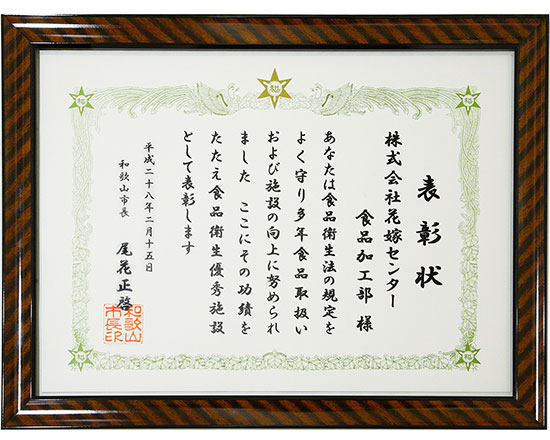 表彰状
株式会社花嫁センター
食品加工部 様
あなたは食品衛生法の規定を
よく守り多年食品取扱い
および施設の向上に努められ
ました ここにその功績を
たたえ食品衛生優秀施設
として表彰します
平成二十八年二月十五日
和歌山市長 尾花正啓
和歌山
市長印